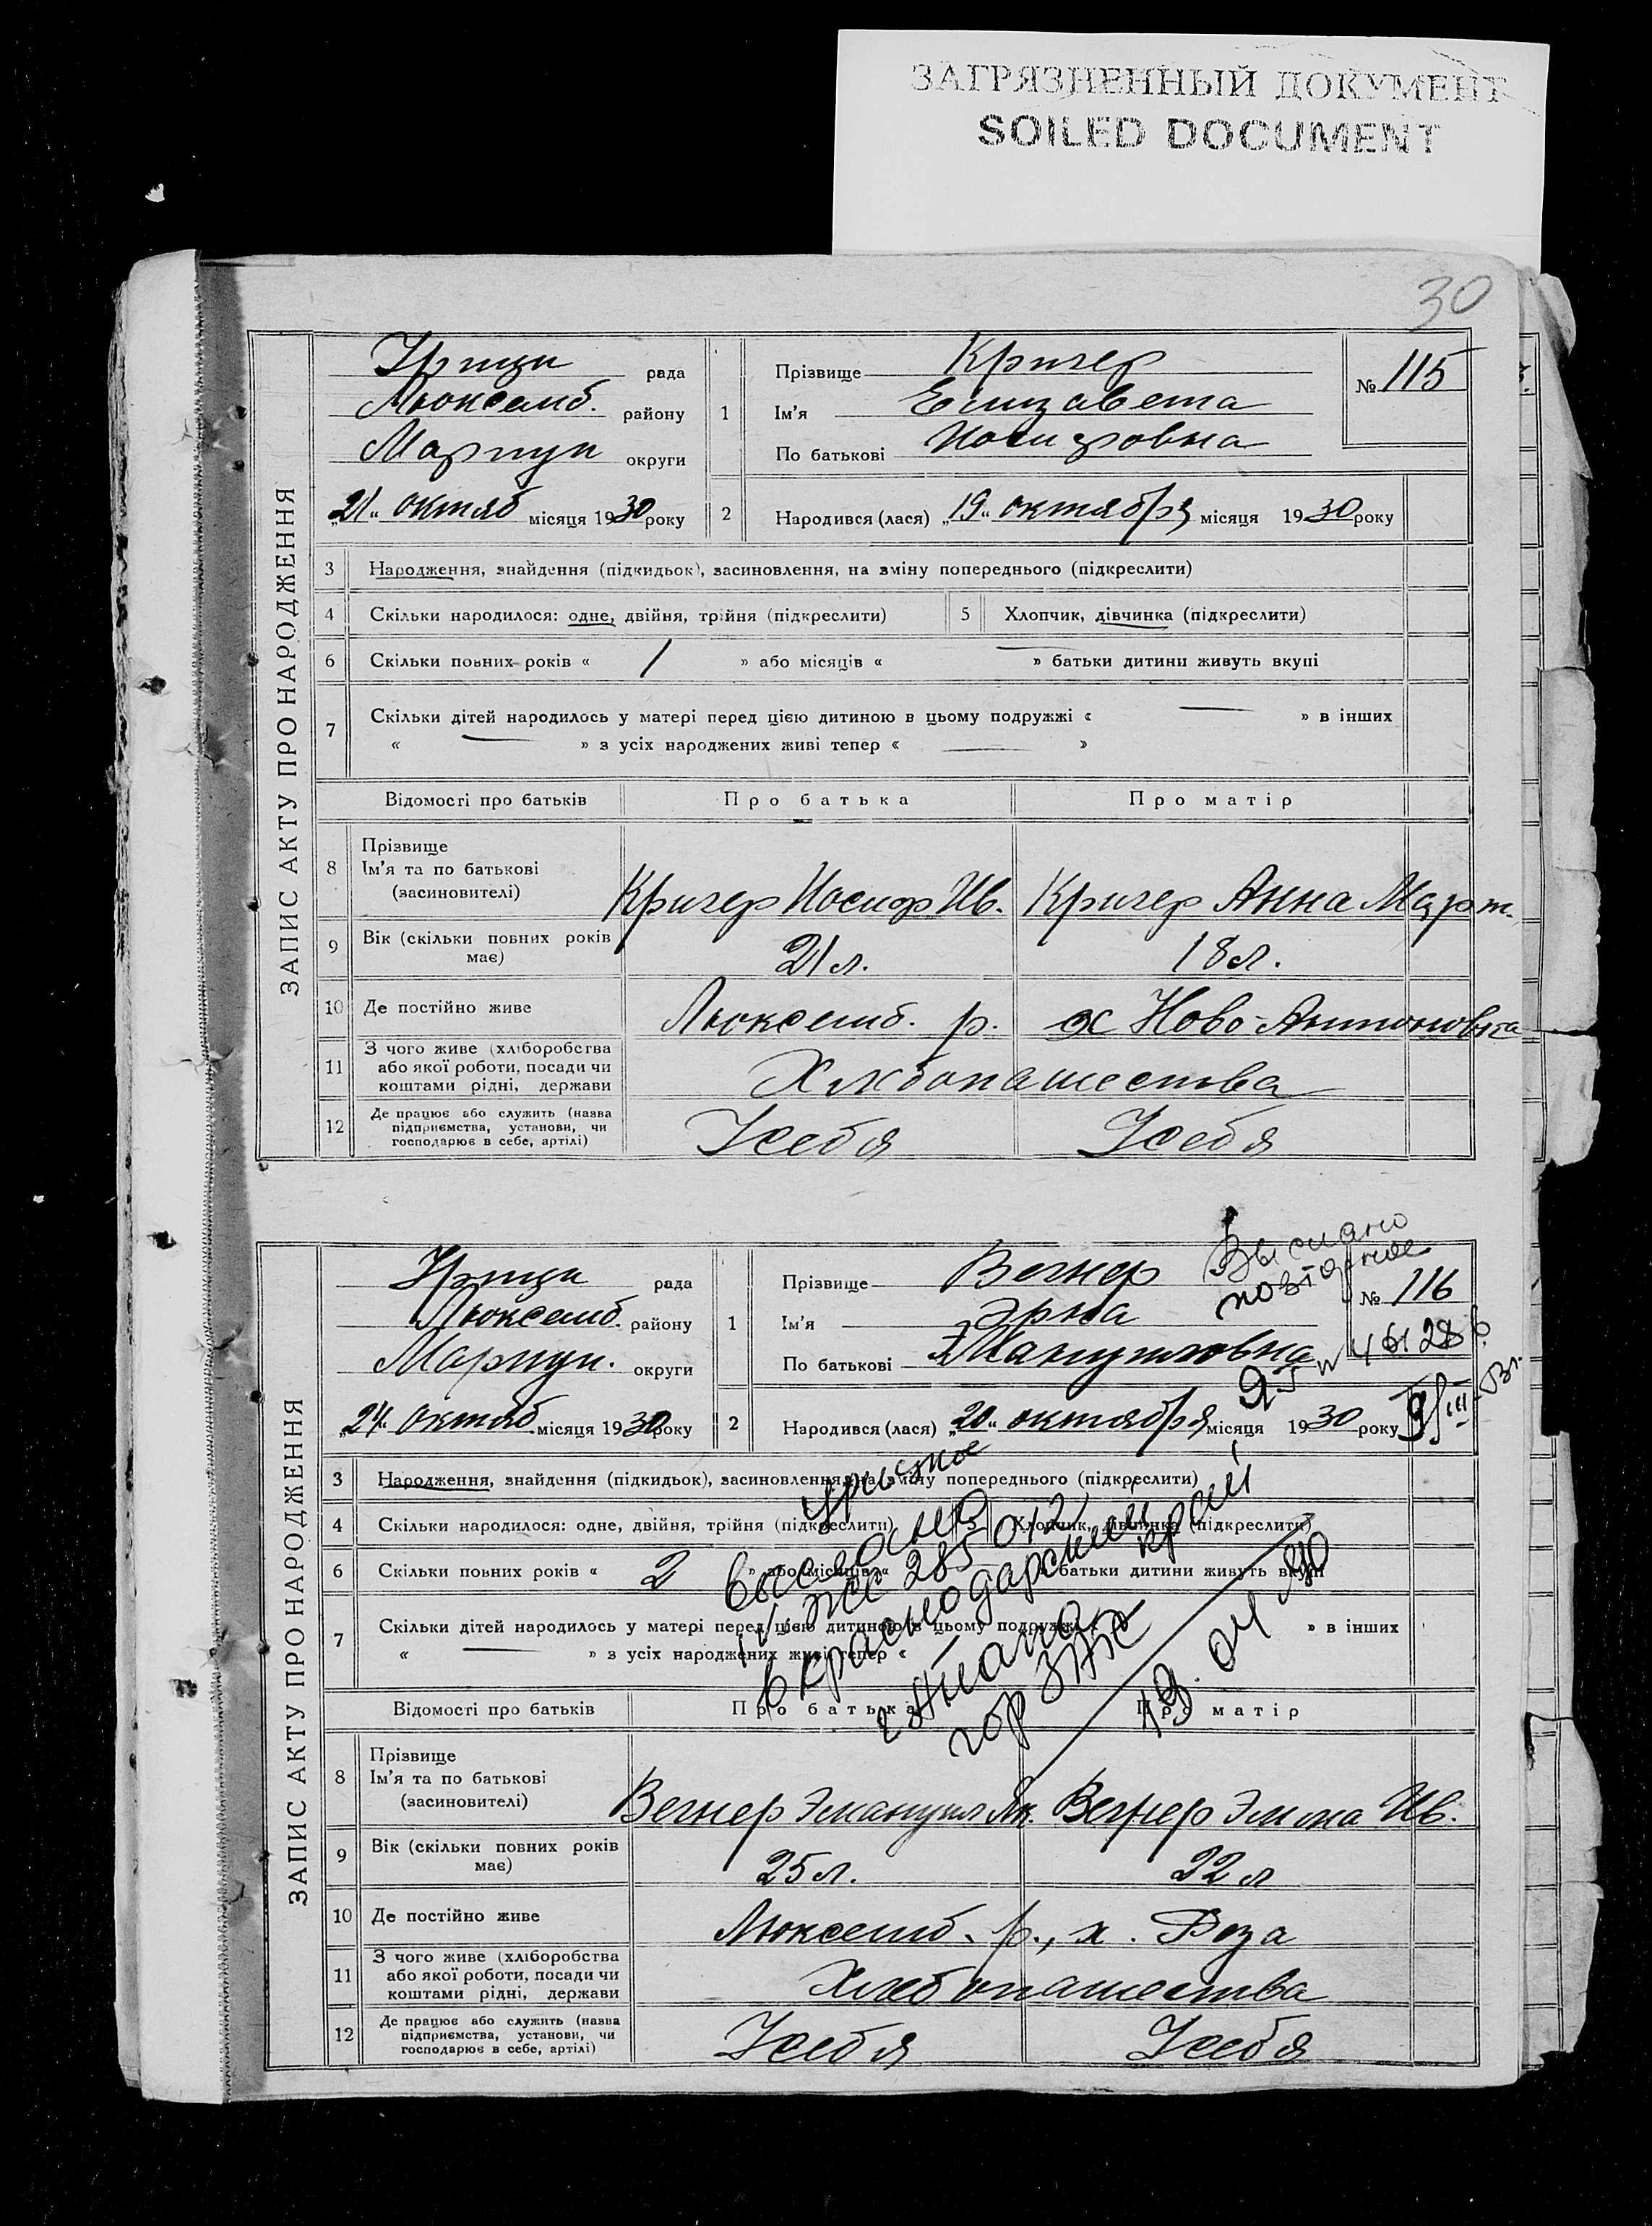 ЗАГРЯЗНЕННЫЙ ДОКУМЕНТ
SOILED DOCUMENT
30
ЗАПИС АКТУ ПРО НАРОДЖЕННЯ
рада
Люксемб. району
Мариуп округи
„21“ октяб місяця 1930 року
1 Прізвище Кригер
Ім'я Елизавета
По батькові Иосифовна
№ 115
2 Народився (лася) „19“ октября місяця 1930 року
3 Народження, знайдення (підкидьок), засиновлення, на зміну попереднього (підкреслити)
4 Скільки народилося: одне, двійня, трійня (підкреслити) 5 Хлопчик, дівчинка (підкреслити)
6 Скільки повних років « 1 » або місяців « — » батьки дитини живуть вкупі
7 Скільки дітей народилось у матері перед цією дитиною в цьому подружжі « — » в інших
« — » з усіх народжених живі тепер « — »
Відомості про батьків Про батька Про матір
8 Прізвище
Ім'я та по батькові
(засиновителі)
Кригер Иосиф Ив. Кригер Анна Март.
9 Вік (скільки повних років
має)
21 л. 18 л.
10 Де постійно живе Люксемб. р. х Ново-Антоновка
11 З чого живе (хліборобства
або якої роботи, посади чи
коштами рідні, держави
Хлебопашества
12 Де працює або служить (назва
підприємства, установи, чи
господарює в себе, артілі)
У себя У себя
ЗАПИС АКТУ ПРО НАРОДЖЕННЯ
рада
Люксемб. району
Мариуп. округи
„24“ октяб місяця 1930 року
1 Прізвище Вегнер
Ім'я Эрна
По батькові Эмануиловна
Выслано
повторное
№ 116
2 Народився (лася) „20“ октября місяця 1930 року
3 Народження, знайдення (підкидьок), засиновлення, на зміну попереднього (підкреслити)
4 Скільки народилося: одне, двійня, трійня (підкреслити) 5 Хлопчик, дівчинка (підкреслити)
6 Скільки повних років « 2 » або місяців « » батьки дитини живуть вкупі
7 Скільки дітей народилось у матері перед цією дитиною в цьому подружжі « » в інших
« — » з усіх народжених живі тепер «
выслано
285012
в краснодарский край
г Анапа
гор ЗАГС
19.04.90
Відомості про батьків Про батька Про матір
8 Прізвище
Ім'я та по батькові
(засиновителі)
Вегнер Эмануил Як. Вегнер Эмма Ив.
9 Вік (скільки повних років
має)
25 л. 22 л
10 Де постійно живе Люксемб. р., х. Роза
11 З чого живе (хліборобства
або якої роботи, посади чи
коштами рідні, держави
Хлебопашества
12 Де працює або служить (назва
підприємства, установи, чи
господарює в себе, артілі)
У себя У себя